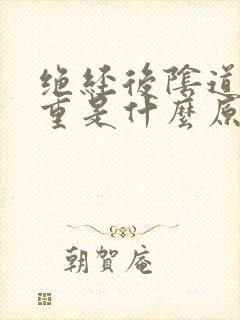 绝经後陰道
重是什麼原
朝賀庵